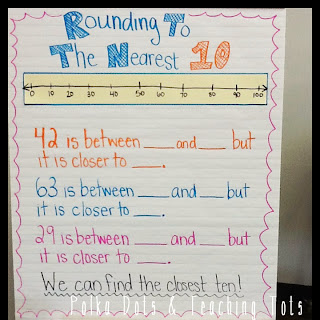 Rounding To
The Nearest 10
0 10 20 30 40 50 60 70 80 90 100
42 is between ____ and ____ but
it is closer to ____.
63 is between ____ and ____ but
it is closer to ____.
29 is between ____ and ____ but
it is closer to ____.
We can find the closest ten!
Polka Dots & Teaching Tots